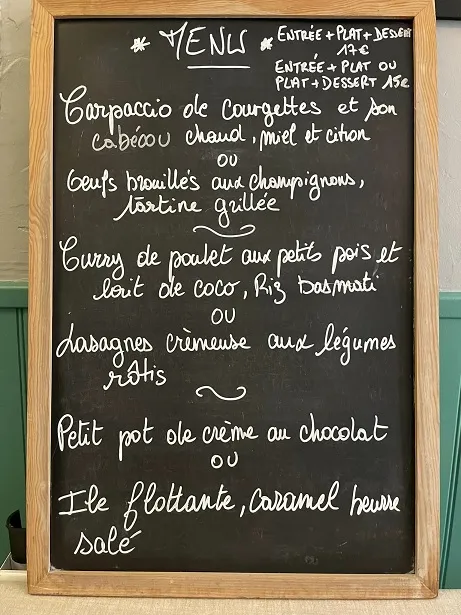 * MENU *
ENTRÉE + PLAT + DESSERT
17€
ENTRÉE + PLAT OU
PLAT + DESSERT 15€
Carpaccio de courgettes et son
cabécou chaud, miel et citron
OU
Oeufs brouillés aux champignons,
tartine grillée
Curry de poulet aux petits pois et
lait de coco, Riz basmati
OU
Lasagnes crèmeuse aux légumes
rôtis
Petit pot de crème au chocolat
OU
Ile flottante, caramel beurre
salé